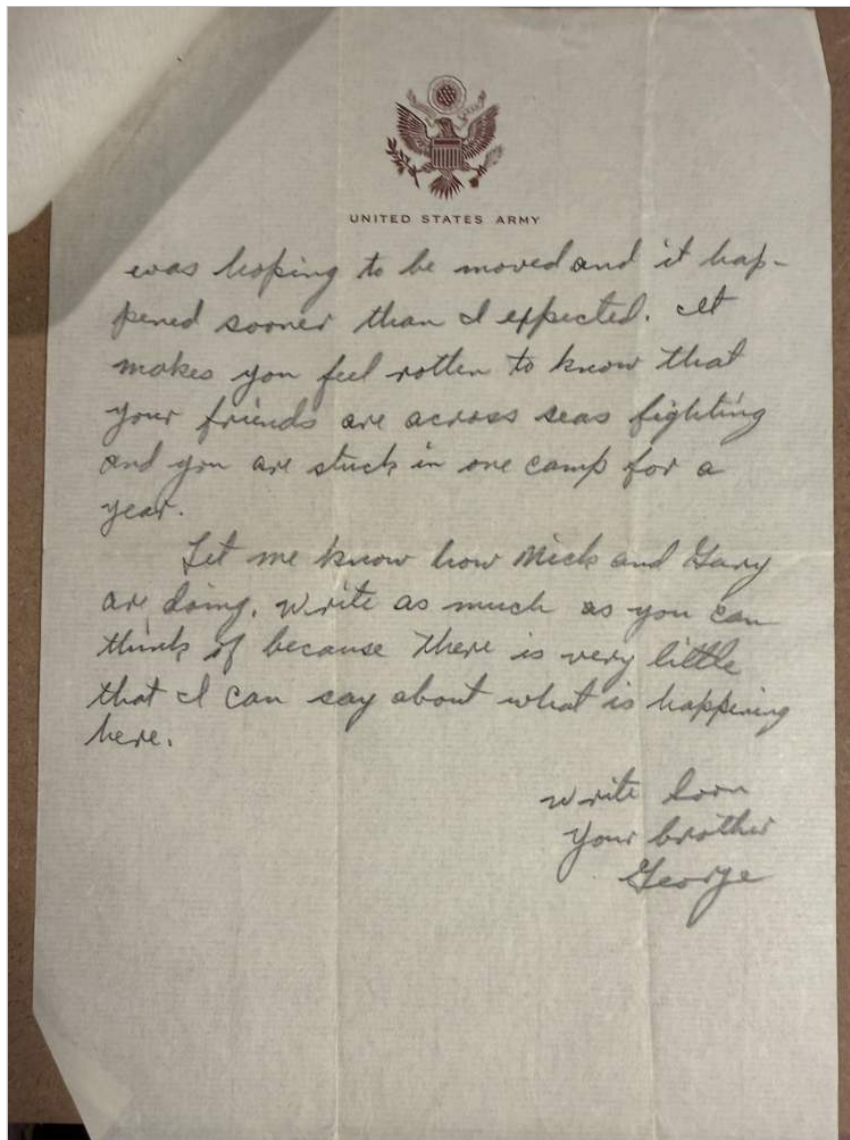 UNITED STATES ARMY
was hoping to be moved and it hap-
pened sooner than I expected. It
makes you feel rotten to know that
your friends are across seas fighting
and you are stuck in one camp for a
year.
Let me know how Mick and Gary
are doing. Write as much as you can
think of because there is very little
that I can say about what is happening
here.
Write soon
Your brother
George